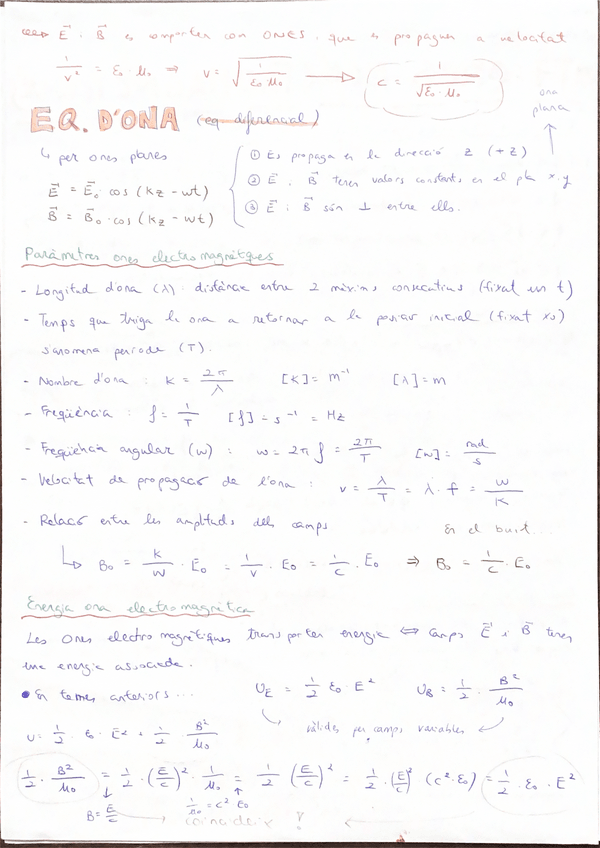 E⃗ i B⃗ es comporten com ONES, que es propaguen a velocitat
1/v² = ε₀ μ₀ ⇒ v = √(1/(ε₀·μ₀)) → c = 1/√(ε₀·μ₀)
ona plana
EQ. D'ONA (eq diferencial)
↳ per ones planes
① Es propaga en la direcció z (+z)
E⃗ = E⃗₀ · cos (kz - wt)
② E⃗ i B⃗ tenen valors constants en el pla x,y
B⃗ = B⃗₀ · cos (kz - wt)
③ E⃗ i B⃗ són ⊥ entre ells.
Paràmetres ones electromagnètiques
- Longitud d'ona (λ): distància entre 2 màxims consecutius (fixat un t)
- Temps que triga la ona a retornar a la posició inicial (fixat x₀)
s'anomena període (T).
- Nombre d'ona : k = 2π/λ [k] = m⁻¹ [λ] = m
- Freqüència : f = 1/T [f] = s⁻¹ = Hz
- Freqüència angular (w) : w = 2π f = 2π/T [w] = rad/s
- Velocitat de propagació de l'ona : v = λ/T = λ · f = w/k
- Relació entre les amplituds dels camps
En el buit...
↳ B₀ = k/w · E₀ = 1/v · E₀ = 1/c · E₀ ⇒ B₀ = 1/c · E₀
Energia ona electromagnètica
Les ones electromagnètiques transporten energia ⇔ Camps E⃗ i B⃗ tenen
una energia associada.
• En temes anteriors... U_E = 1/2 ε₀ · E² U_B = 1/2 · B²/μ₀
vàlides per camps variables
U = 1/2 · ε₀ · E² + 1/2 · B²/μ₀
1/2 · B²/μ₀ = 1/2 · (E/c)² · 1/μ₀ = 1/2 (E/c)² = 1/2 · (E/c)² (c²·ε₀) = 1/2 · ε₀ · E²
B = E/c 1/μ₀ = c² ε₀
coincideix !